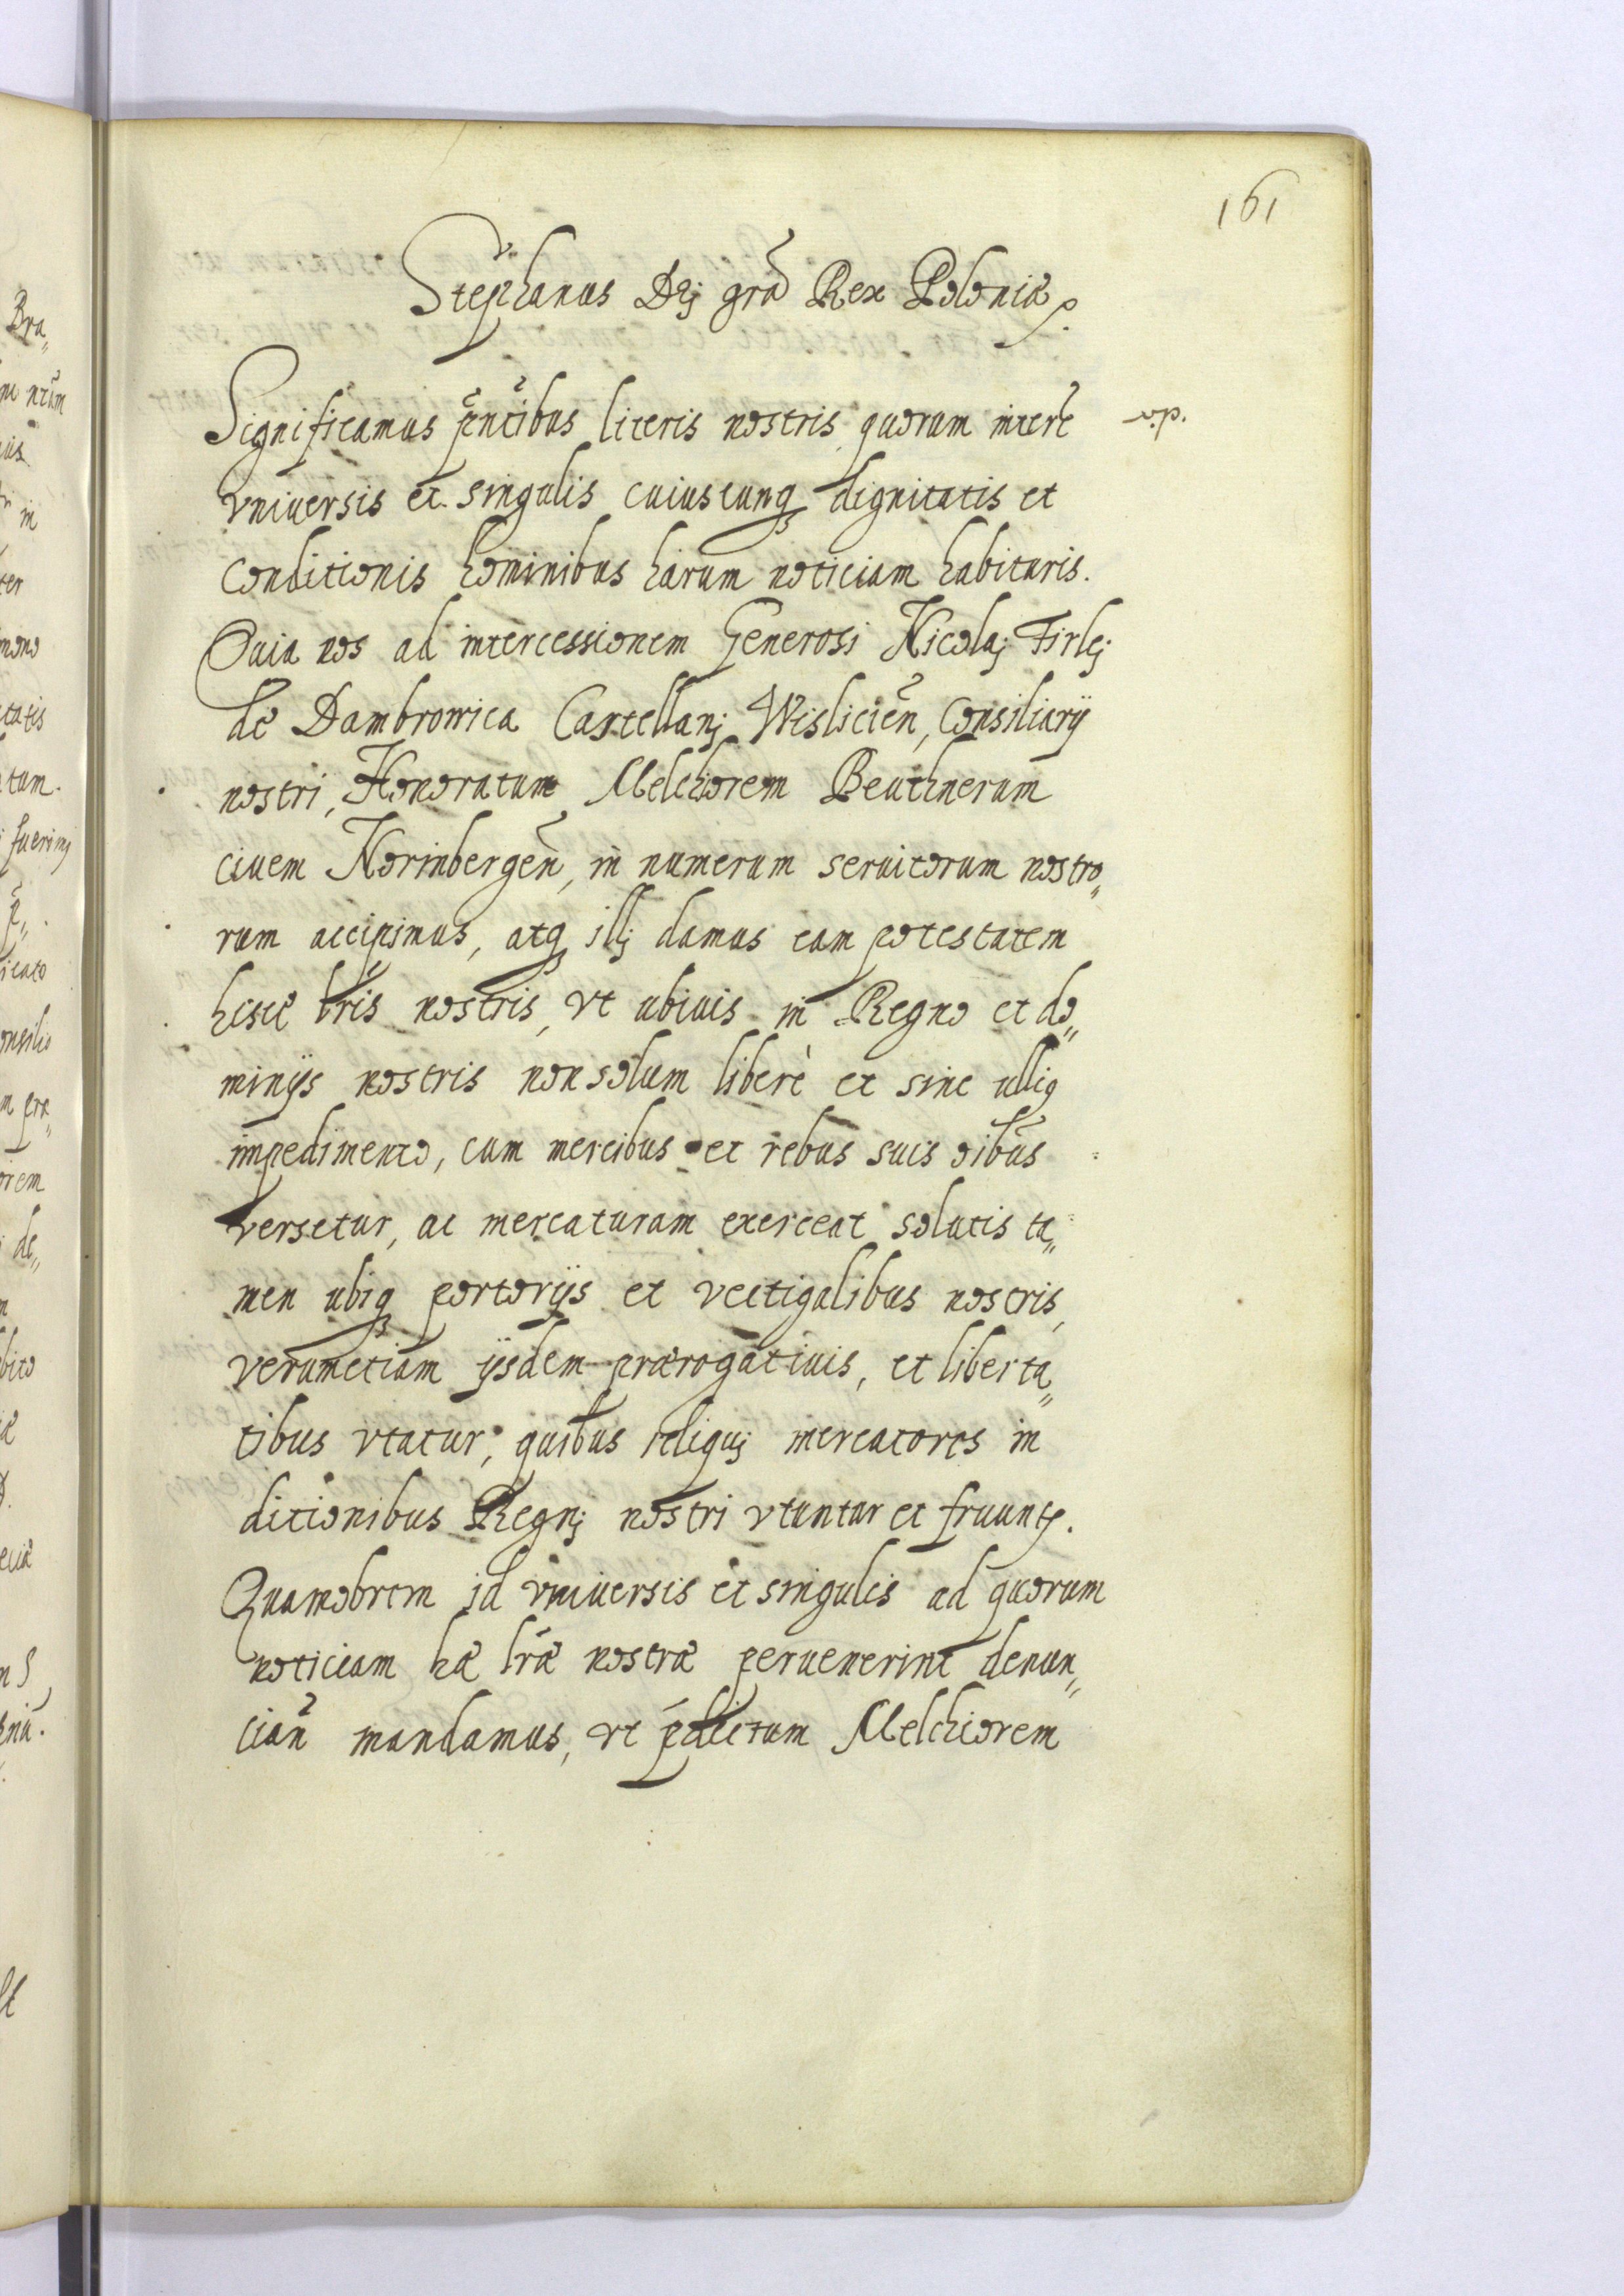 161
Stephanus Dej grã Rex Poloniæ
Significamus p̃ntibus literis nostris quorum interẽ
vniuersis et singulis cuiuscunq dignitatis et
conditionis hominibus harum noticiam habituris.
Quia nos ad intercessionem Generosi Nicolaj Firlej
de Dambrowica Castellanj Wisliciẽn, Consiliarij
nostri, Honoratum Melchiorem Beuthnerum
ciuem Norinbergẽn, in numerum seruitorum nostro„
rum accipimus, atq illj damus eam potestatem
hisce lris nostris, vt ubiuis in Regno et do„
minijs nostris non solum liberè et sine
impedimento, cum mercibus et rebus suis oibus
versetur, ac mercaturam exerceat solutis ta„
men ubiq portorijs et vectigalibus nostris,
verumetiam ijsdem prærogatiuis, et liberta„
tibus vtatur, quibus reliquj mercatores in
ditionibus Regnj nostri vtuntur et fruunt.
Quamobrem id vniuersis et singulis ad quorum
noticiam hæ lræ nostræ peruenerint denun„
ciañ mandamus, vt p̃dictum Melchiorem